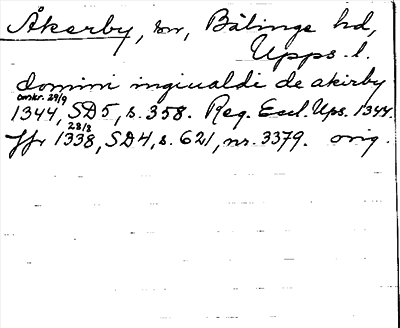 Åkerby, sn, Bälinge hd,
Upps. l.
domini ingiualdi de akirby
omkr. 29/9
1344, SD5, s. 358. Reg. Eccl. Ups. 1344.
28/3
Jfr 1338, SD4, s. 621, nr. 3379. orig.